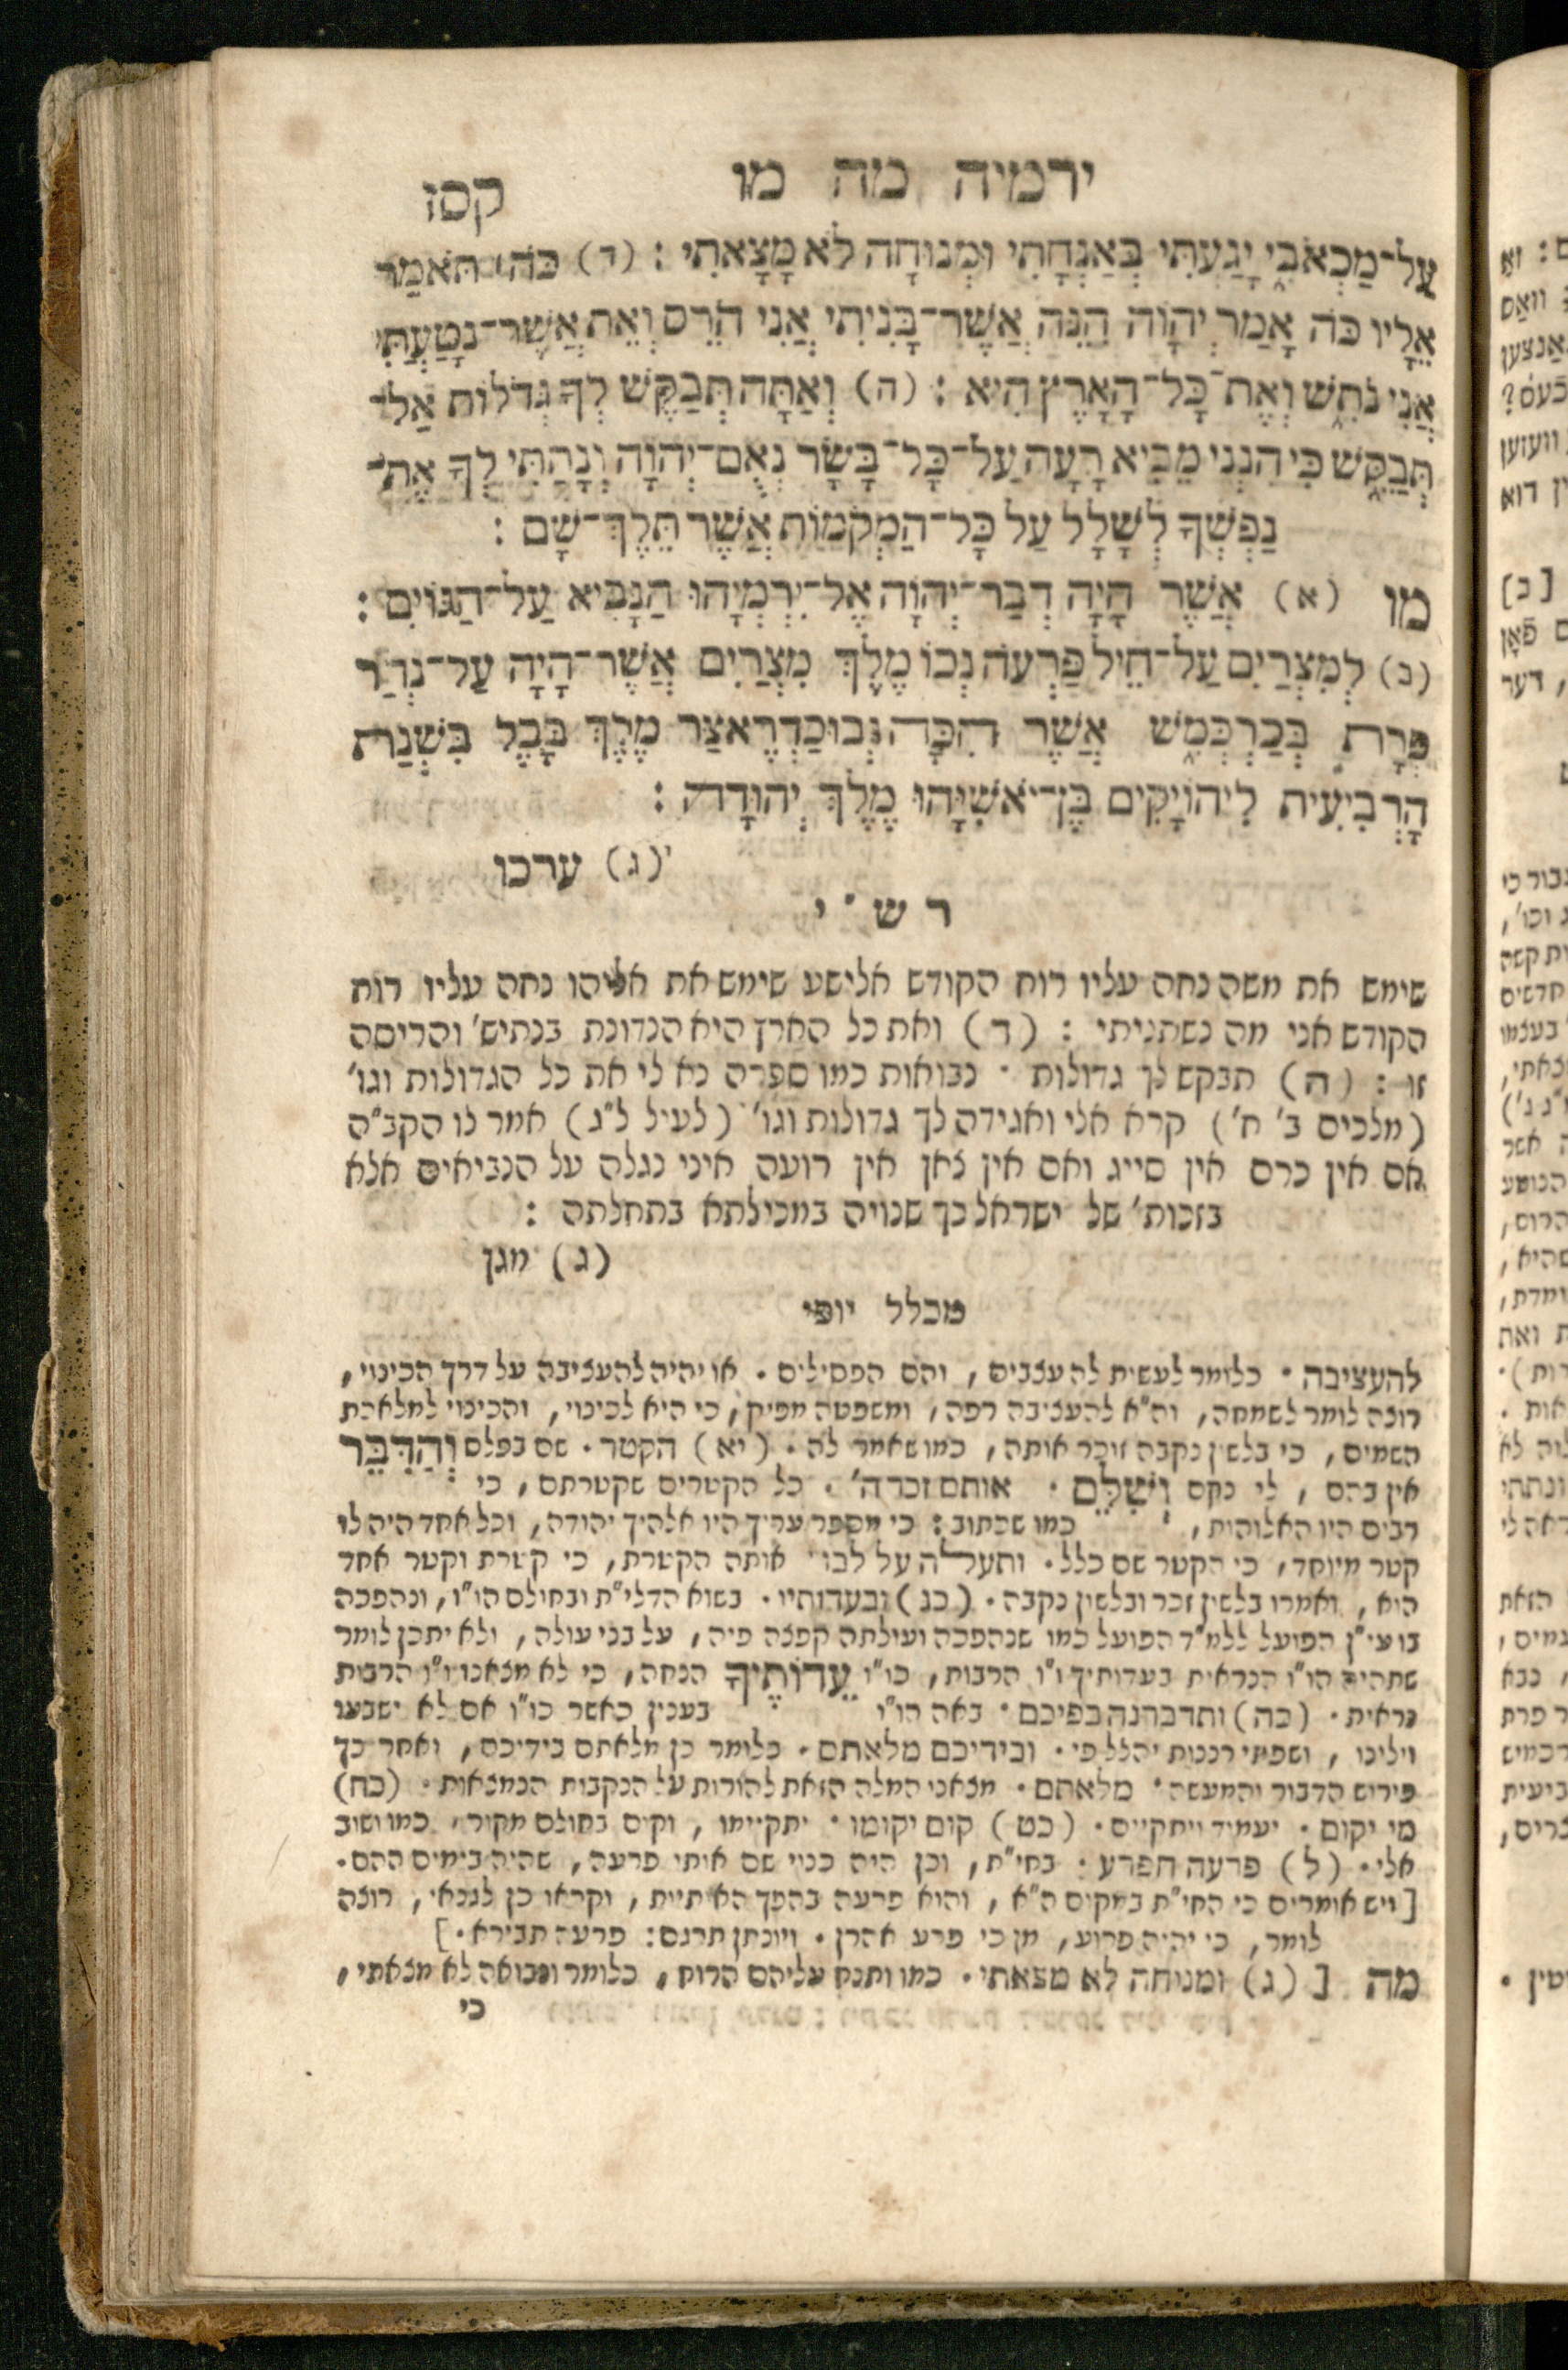 ירמיה מה מו
קסז
עַל־מַכְאֹבִי יָגַעְתִּי בְּאַנְחָתִי וּמְנוּחָה לֹא מָצָאתִי : (ד) כֹּה תֹּאמַר
אֵלָיו כֹּה אָמַר יְהוָֹה הִנֵּה אֲשֶׁר־בָּנִיתִי אֲנִי הֹרֵס וְאֵת אֲשֶׁר־נָטַעְתִּי
אֲנִי נֹתֵשׁ וְאֶת־כָּל־הָאָרֶץ הִיא : (ה) וְאַתָּה תְּבַקֶּשׁ לְךָ גְדֹלוֹת אַל־
תְּבַקֵּשׁ כִּי הִנְנִי מֵבִיא רָעָה עַל־כָּל־בָּשָׂר נְאֻם־יְהוָֹה וְנָתַתִּי לְךָ אֶת־
נַפְשְׁךָ לְשָׁלָל עַל כָּל־הַמְּקֹמוֹת אֲשֶׁר תֵּלֶךְ־שָׁם :
מו (א) אֲשֶׁר הָיָה דְבַר־יְהוָֹה אֶל־יִרְמְיָהוּ הַנָּבִיא עַל־הַגּוֹיִם :
(ב) לְמִצְרַיִם עַל־חֵיל פַּרְעֹה נְכוֹ מֶלֶךְ מִצְרַיִם אֲשֶׁר־הָיָה עַל־נְהַר
פְּרָת בְּכַרְכְּמִשׁ אֲשֶׁר הִכָּה נְבוּכַדְרֶאצַּר מֶלֶךְ בָּבֶל בִּשְׁנַת
הָרְבִיעִית לִיהוֹיָקִים בֶּן־יֹאשִׁיָּהוּ מֶלֶךְ יְהוּדָה :
(ג) ערכו
ר ש " י
שימש את משה נחה עליו רוח הקודש אלישע שימש את אליהו נחה עליו רוח
הקודש אני מה נשתניתי : (ד) ואת כל הארץ היא הנדונת בנתיש' והריסה
זו : (ה) תבקש לך גדולות . נבואות כמו ספרה נא לי את כל הגדולות וגו'
(מלכים ב' ח') קרא אלי ואגידה לך גדולות וגו' (לעיל ל"ג) אמר לו הקב"ה
אם אין כרם אין סייג ואם אין צאן אין רועה איני נגלה על הנביאים אלא
בזכות' של ישראל כך שנויה במכילתא בתחלתה :
(ג) מגן
מכלל יופי
להעציבה . כלומר לעשית לה עצבים , והם הפסילים . או יהיה להעציבה על דרך הכינוי ,
רוצה לומר לשמחה, וה"א להעציבה רפה, ומשפטה מפיק, כי היא לכינוי, והכינוי למלאכת
השמים, כי בלשין נקבה זוכר אותה, כמו שאמר לה . (יא) הקטר . שם בפלס וְהַדִּבֵּר
אין בהם, לי נקם וְשִׁלֵּם . אותם זכר ה' . כל הקטרים שקטרתם, כי
רבים היו האלוהית, כמו שכתוב : כי מספר עריך היו אלהיך יהודה, וכל אחד היה לו
קטר מיוחד, כי הקטר שם כלל . ותעלה על לבו אותה הקטרת, כי קטרת וקטר אחד
היא, ואמרו בלשין זכר ובלשין נקבה . (כג) ובעדותיו . בשוא הדלי"ת ובחולם הו"ו, ונהפכה
בו עי"ן הפועל ללמ"ד הפועל כמו שנהפכה ועולתה קפצה פיה, על בני עולה, ולא יתכן לומר
שתהיה הו"ו הנראית בעדותיך ו"ו הרבות, כו"ו עֵדוֹתֶיךָ הנחה, כי לא מצאנו ו"ו הרבות
נראית . (כה) ותדברנה בפיכם . באה הו"ו בענין כאשר כו"ו אם לא ישבעו
וילינו, ושפתי רננות יהלל פי . ובידיכם מלאתם . כלומר כן מלאתם בידיכם, ואחר כך
פירוש הדבור והמעשה . מלאתם . מצאני המלה הזאת להורות על הנקבות הנמצאות . (כח)
מי יקום . יעמיד ויתקיים . (כט) קום יקומו . יתקיימו, וקים בחולם מקור, כמו ושוב
אלי . (ל) פרעה חפרע . בחי"ת, וכן היה כנוי שם אותי פרעה, שהיה בימים ההם .
[ויש אומרים כי החי"ת במקום ה"א, והוא פרעה בהפך האתיות, וקראו כן לגנאי, רוצה
לומר, כי יהיה פרוע, מן כי פרע אהרן . ויונתן תרגם : פרעה תבירא .]
מה [ (ג) ומנוחה לא מצאתי . כמו ותנח עליהם הרוח, כלומר ונבואה לא מצאתי,
כי